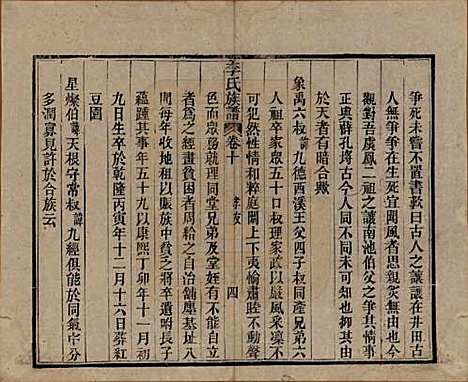 爭死未嘗不置書歎曰古人之讓讓在井田古
人無爭爭在生死宜聞風者思親炙無由也今
觀對吾虞鳳二祖之讓南池伯父之爭其情事
正與薛孔埒古今人同不同未可知也抑其分
於天者有暗合歟
象禹六叔諱九德西溪王父四子叔同產兄弟六
人祖卒家眾五十口叔理家政以嚴風采凜不
可犯然性情和粹庭闈上下夷愉肅睦不動聲
色而眾務就理同堂兄弟及堂
李氏族譜 卷十 孝友 四
者為之經畫貧困者周給之自治舖塵基址八
間每年收地租以賑族中貧乏將卒遺囑長子
蘊踵其事年五十九以康熙丁卯年十一月初
九日生卒於乾隆丙寅年十二月十六日葬紅
豆園
星燦伯諱天根守常叔諱九經俱能於同氣中分
多潤寡見許於合族云